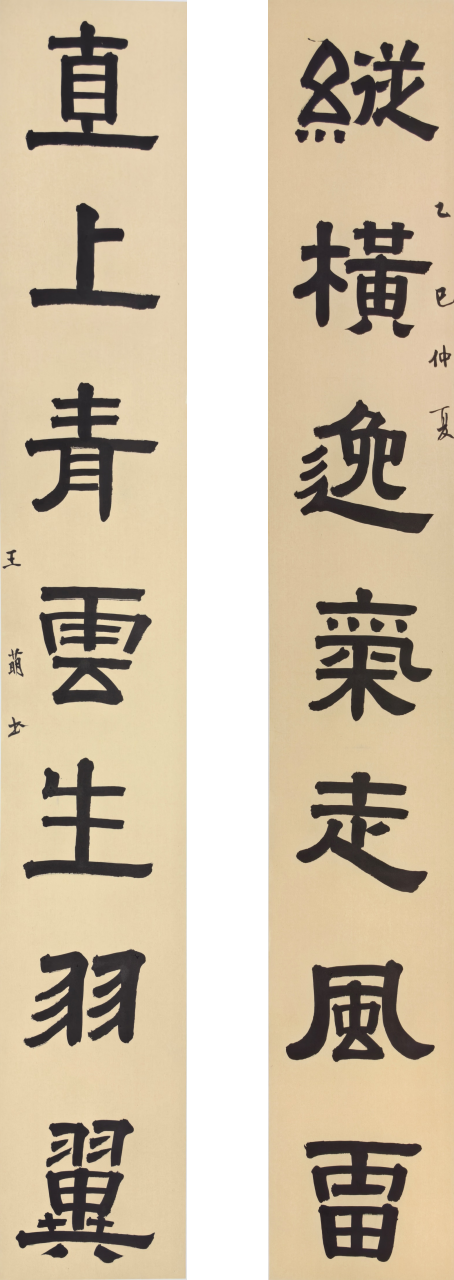 乙巳仲夏
縱橫逸氣走風雷
直上青雲生羽翼
王萌书